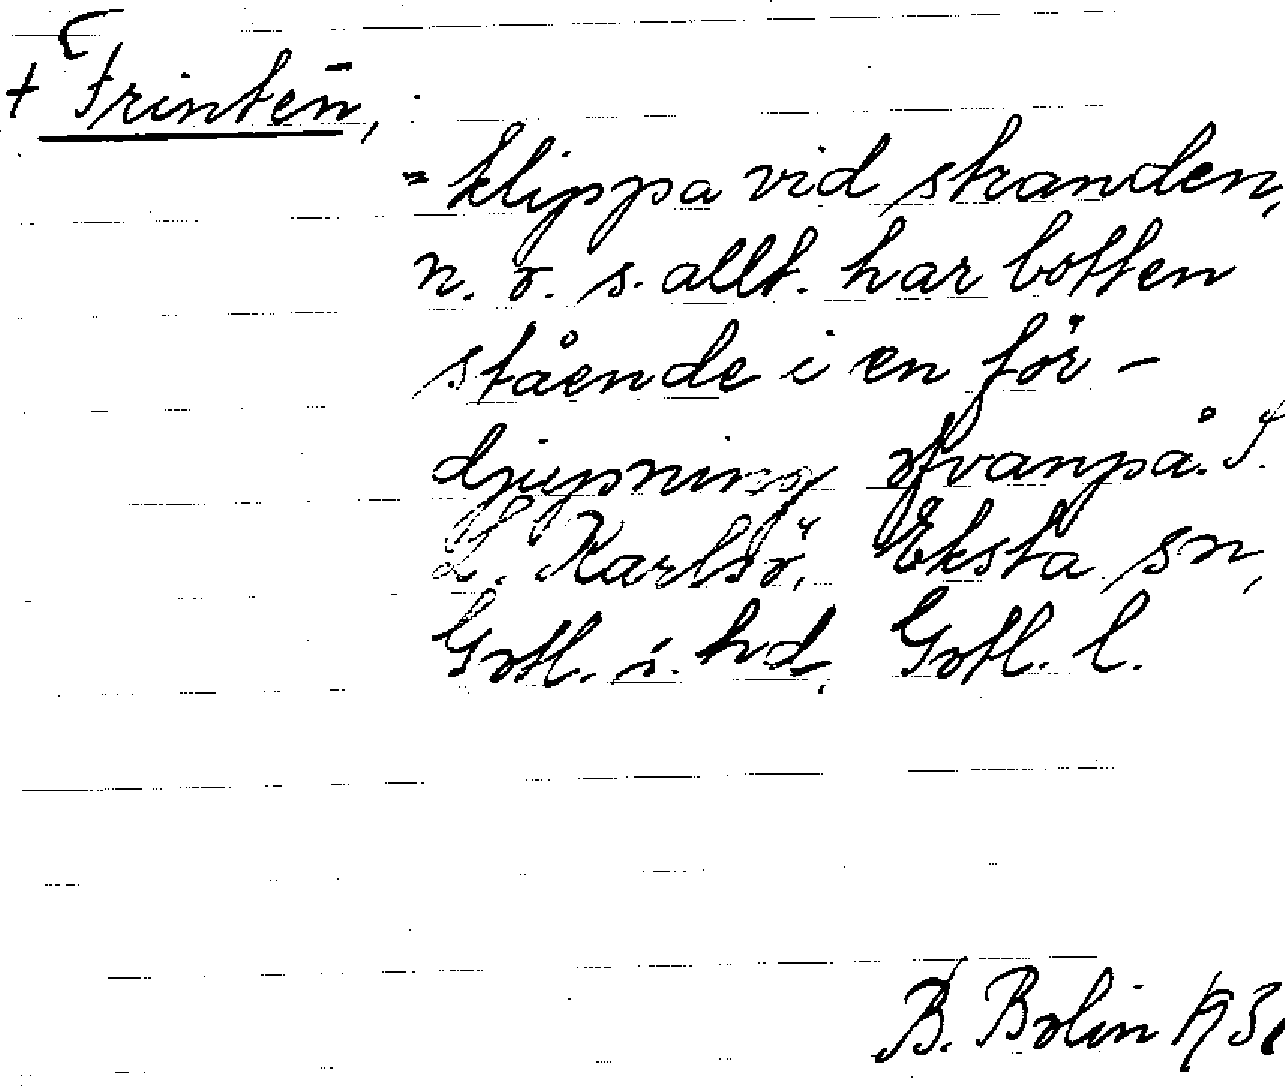 + Frinten,
= klippa vid stranden,
n. o. s. allt. har botten
stående i en för-
djupning ofvanpå. S.
L. Karlsö, Eksta sn,
Gotl. s. hd, Gotl. l.
B. Bolin